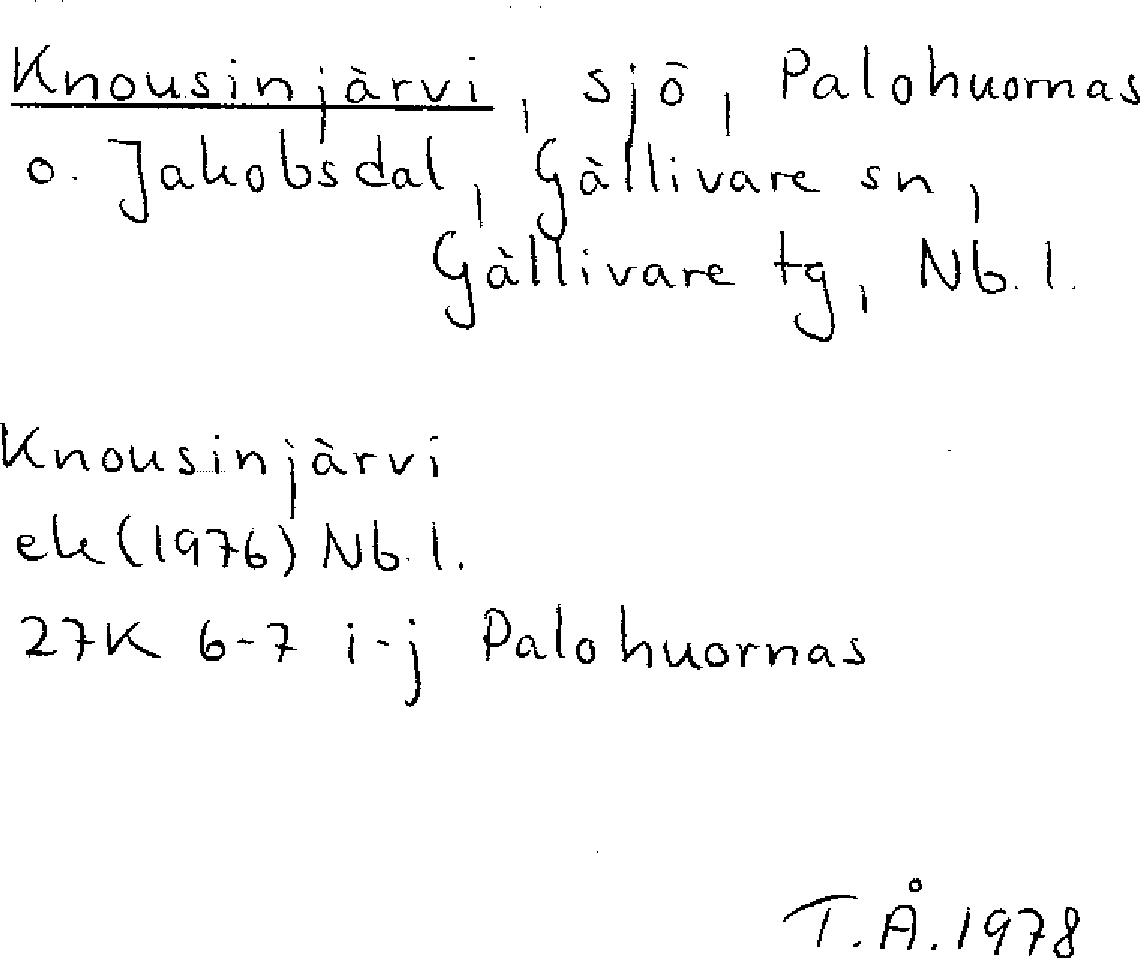 Knousinjärvi, sjö, Palohuornas
o. Jakobsdal, Gällivare sn,
Gällivare tg, Nb. l.
Knousinjärvi
ek (1976) Nb. l.
27K 6-7 i-j Palohuornas
T.Å. 1978